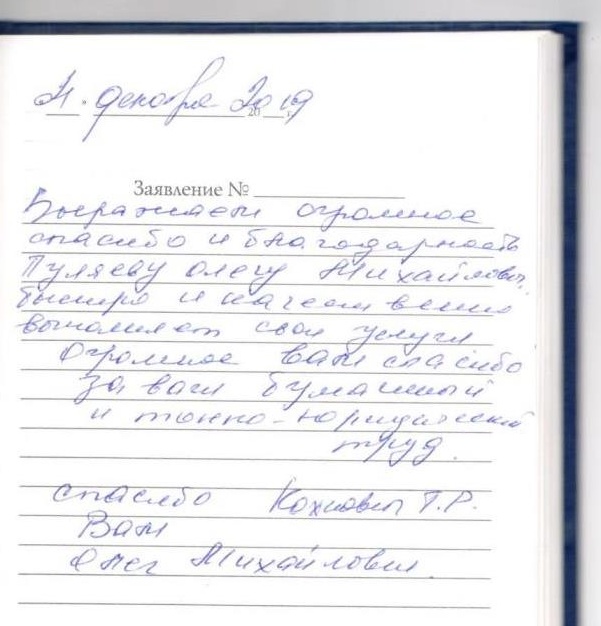 декабря 2019
20 г.
Заявление №
Выражаем огромное
спасибо и благодарность
Пуляеву Олегу Михайлович.
быстро и качественно
выполняет свои услуги
Огромное вам спасибо
за ваш бумажный
и точно-юридический
труд.
спасибо Т.Р.
Вам
Олег Михайлович.